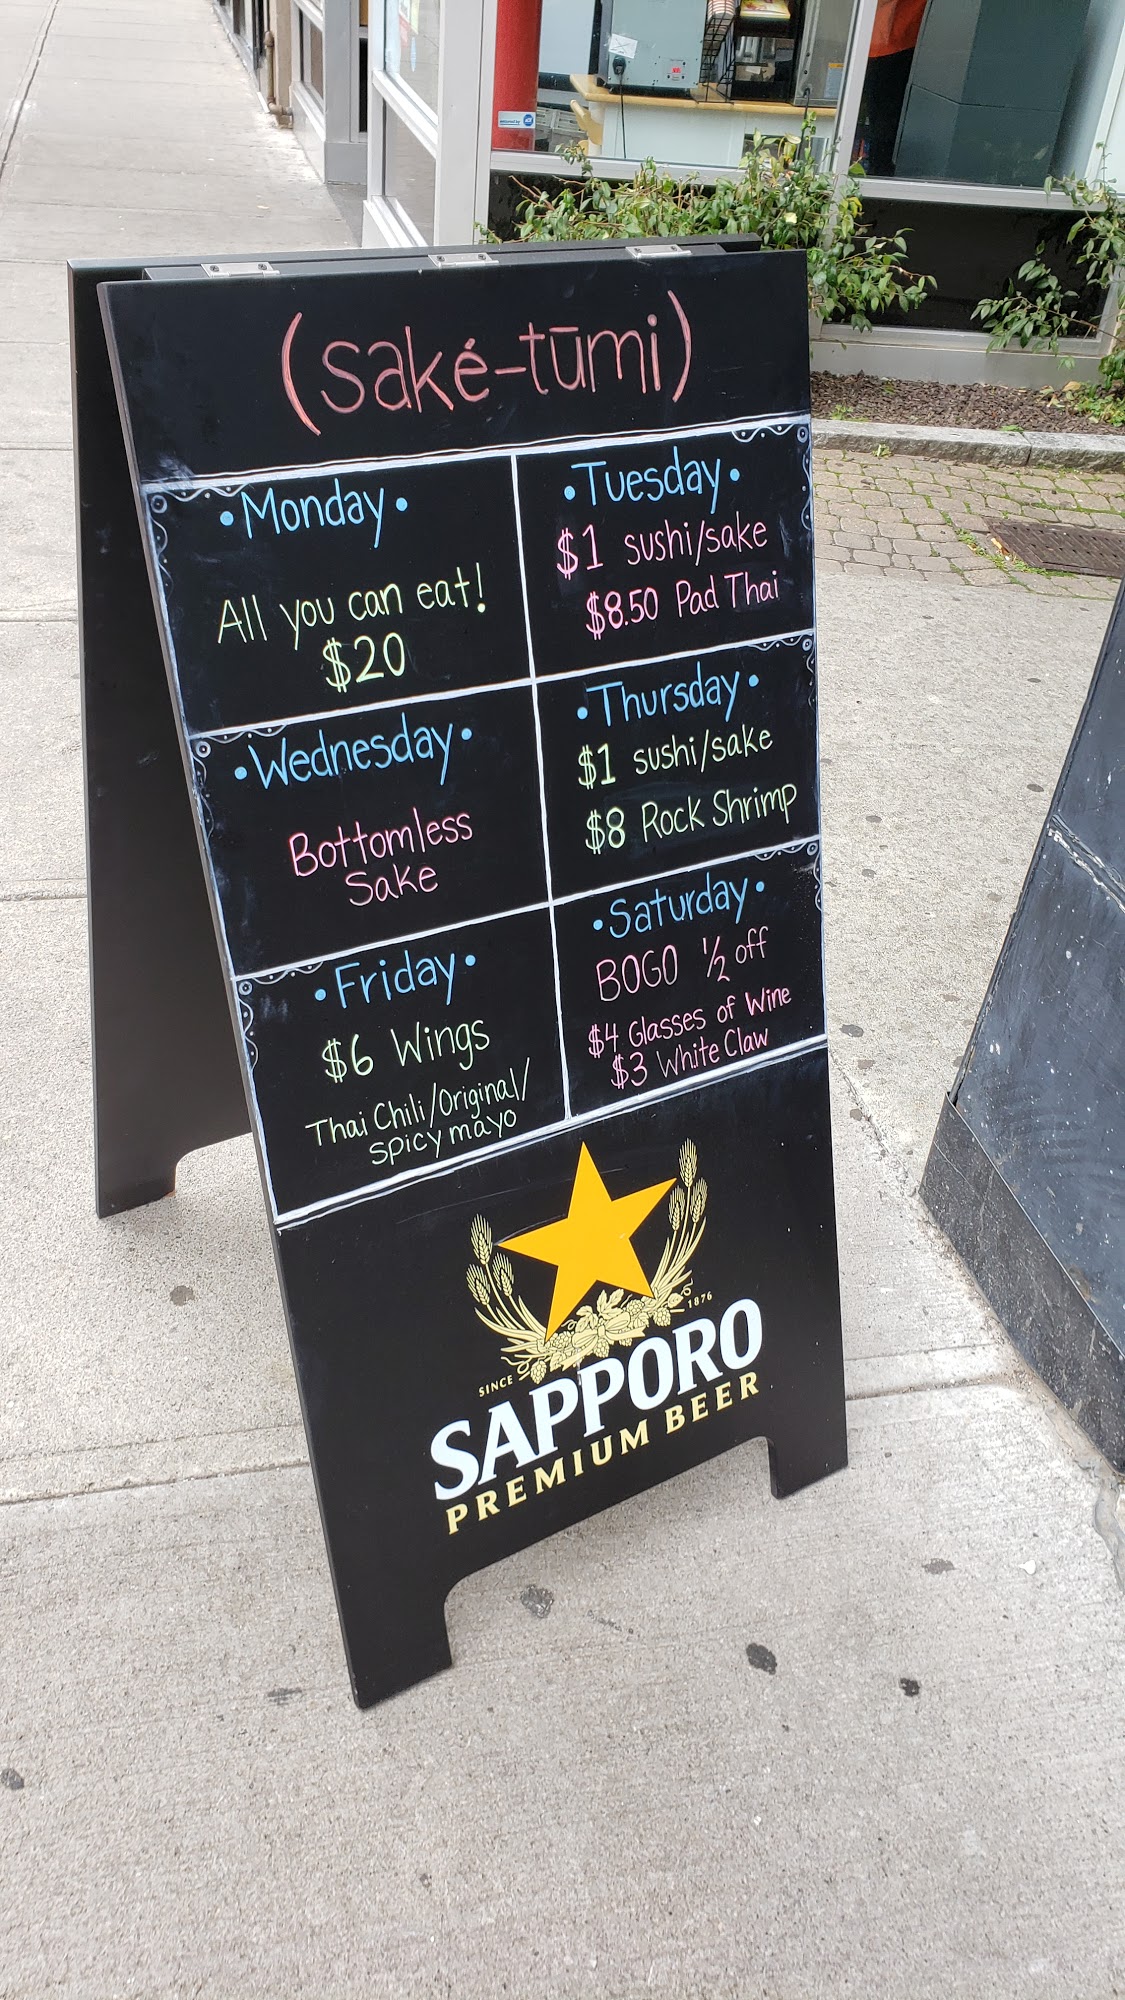 (saké-tūmi)
• Monday •
All you can eat!
$20
• Tuesday •
$1 sushi/sake
$8.50 Pad Thai
• Wednesday •
Bottomless
Sake
• Thursday •
$1 sushi/sake
$8 Rock Shrimp
• Friday •
$6 Wings
Thai Chili/Original/
spicy mayo
• Saturday •
BOGO ½ off
$4 Glasses of Wine
$3 White Claw
SINCE 1876
SAPPORO
PREMIUM BEER